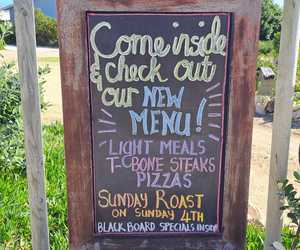 Come inside
& check out
our NEW
MENU!
LIGHT MEALS
T-BONE STEAKS
PIZZAS
SUNDAY ROAST
ON SUNDAY 4TH
BLACKBOARD SPECIALS INSIDE